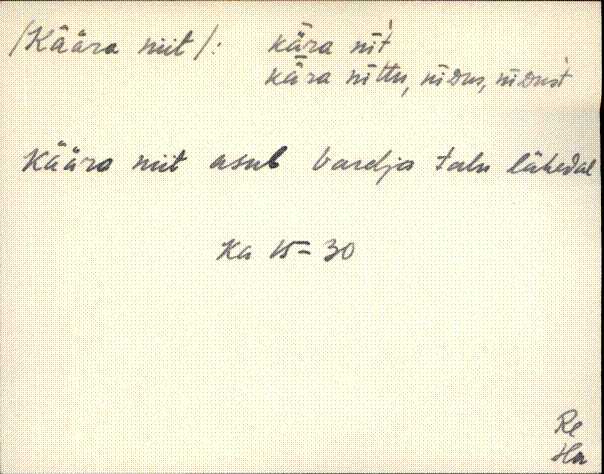 /Käära niit/: kǟra nīt̀
kǟra nīttu, nīᴅus, nīᴅust̀
Käära niit asub Vardja talu lähedal
Ka 15-30
Re
Ha